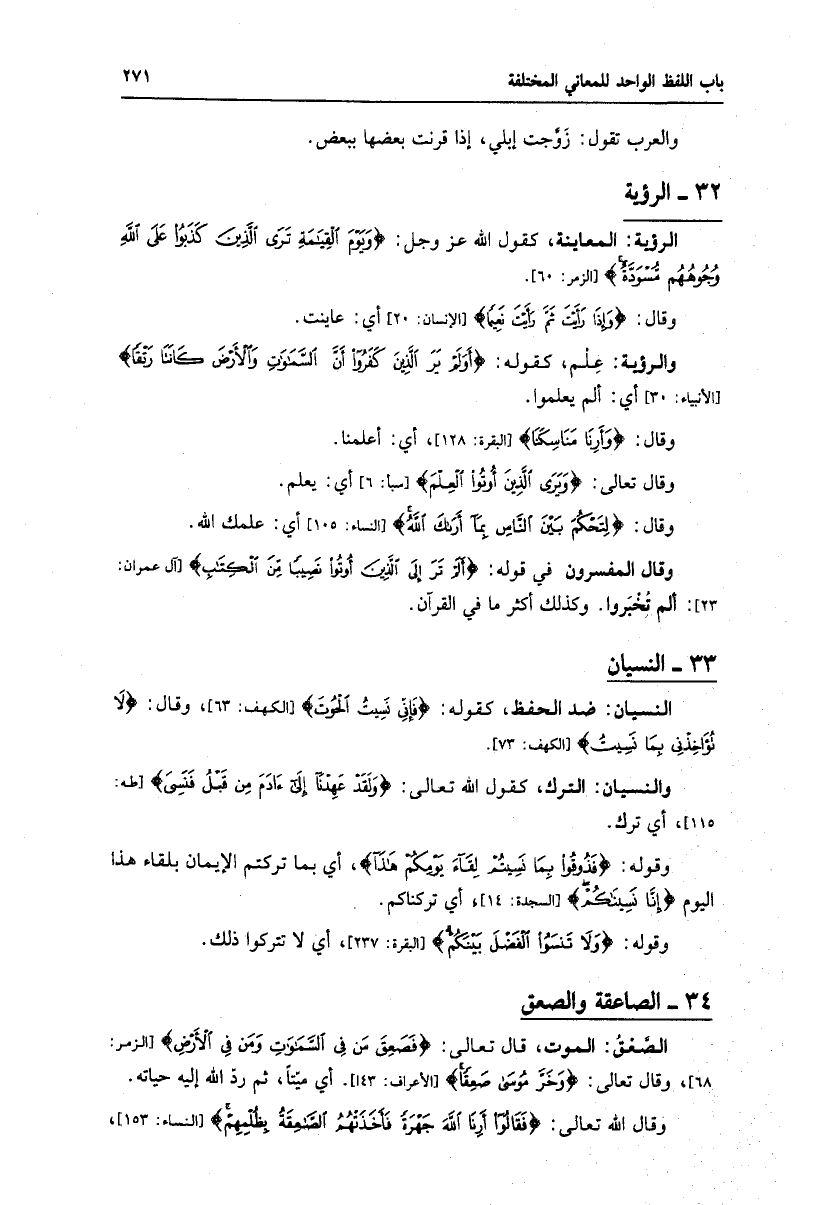 باب اللفظ الواحد للمعاني المختلفة ٢٧١
والعرب تقول: زَوَّجت إبلي، إذا قرنت بعضها ببعض.
٣٢ ـ الرؤية
الرؤية: المعاينة، كقول الله عز وجل: ﴿وَيَوْمَ ٱلْقِيَٰمَةِ تَرَى ٱلَّذِينَ كَذَبُوا۟ عَلَى ٱللَّهِ
وُجُوهُهُم مُّسْوَدَّةٌۚ﴾ [الزمر: ٦٠].
وقال: ﴿وَإِذَا رَأَيْتَ ثَمَّ رَأَيْتَ نَعِيمًا﴾ [الإنسان: ٢٠] أي: عاينت.
والرؤية: عِلْم، كقوله: ﴿أَوَلَمْ يَرَ ٱلَّذِينَ كَفَرُوٓا۟ أَنَّ ٱلسَّمَٰوَٰتِ وَٱلْأَرْضَ كَانَتَا رَتْقًا﴾
[الأنبياء: ٣٠] أي: ألم يعلموا.
وقال: ﴿وَأَرِنَا مَنَاسِكَنَا﴾ [البقرة: ١٢٨]، أي: أعلمنا.
وقال تعالى: ﴿وَيَرَى ٱلَّذِينَ أُوتُوا۟ ٱلْعِلْمَ﴾ [سبأ: ٦] أي: يعلم.
وقال: ﴿لِتَحْكُمَ بَيْنَ ٱلنَّاسِ بِمَآ أَرَىٰكَ ٱللَّهُۚ﴾ [النساء: ١٠٥] أي: علمك الله.
وقال المفسرون في قوله: ﴿أَلَمْ تَرَ إِلَى ٱلَّذِينَ أُوتُوا۟ نَصِيبًا مِّنَ ٱلْكِتَٰبِ﴾ [آل عمران:
٢٣]: ألم تُخْبَروا. وكذلك أكثر ما في القرآن.
٣٣ ـ النسيان
النسيان: ضد الحفظ، كقوله: ﴿فَإِنِّى نَسِيتُ ٱلْحُوتَ﴾ [الكهف: ٦٣]، وقال: ﴿لَا
تُؤَاخِذْنِى بِمَا نَسِيتُ﴾ [الكهف: ٧٣].
والنسيان: الترك، كقول الله تعالى: ﴿وَلَقَدْ عَهِدْنَآ إِلَىٰٓ ءَادَمَ مِن قَبْلُ فَنَسِىَ﴾ [طه:
١١٥]، أي ترك.
وقوله: ﴿فَذُوقُوا۟ بِمَا نَسِيتُمْ لِقَآءَ يَوْمِكُمْ هَٰذَآ﴾، أي بما تركتم الإيمان بلقاء هذا
اليوم ﴿إِنَّا نَسِينَٰكُمْۖ﴾ [السجدة: ١٤]، أي تركناكم.
وقوله: ﴿وَلَا تَنسَوُا۟ ٱلْفَضْلَ بَيْنَكُمْۚ﴾ [البقرة: ٢٣٧]، أي لا تتركوا ذلك.
٣٤ ـ الصاعقة والصعق
الصَّعْقُ: الموت، قال تعالى: ﴿فَصَعِقَ مَن فِى ٱلسَّمَٰوَٰتِ وَمَن فِى ٱلْأَرْضِ﴾ [الزمر:
٦٨]، وقال تعالى: ﴿وَخَرَّ مُوسَىٰ صَعِقًاۚ﴾ [الأعراف: ١٤٣]. أي ميّتاً، ثم ردّ الله إليه حياته.
وقال الله تعالى: ﴿فَقَالُوٓا۟ أَرِنَا ٱللَّهَ جَهْرَةً فَأَخَذَتْهُمُ ٱلصَّٰعِقَةُ بِظُلْمِهِمْۚ﴾ [النساء: ١٥٣]،